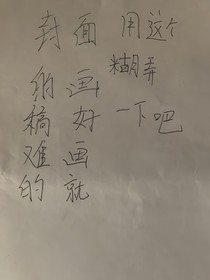 封面
的画
稿好
难画
的就
用这个
糊弄
一下吧